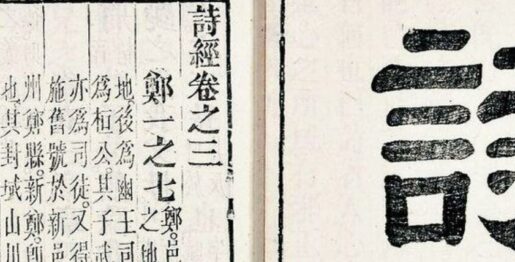 詩經卷之三
鄭一之七
鄭邑
之地
地後爲幽王司
爲桓公其子武
亦爲司徒又得
施舊號於新邑
州鄭縣新鄭卽
地其封域山川